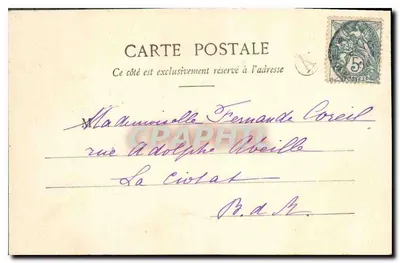 CARTE POSTALE
Ce côté est exclusivement réservé à l'adresse
Mademoiselle Fernande Coreil
rue Adolphe Abeille
La Ciotat
B. d. R.
5c